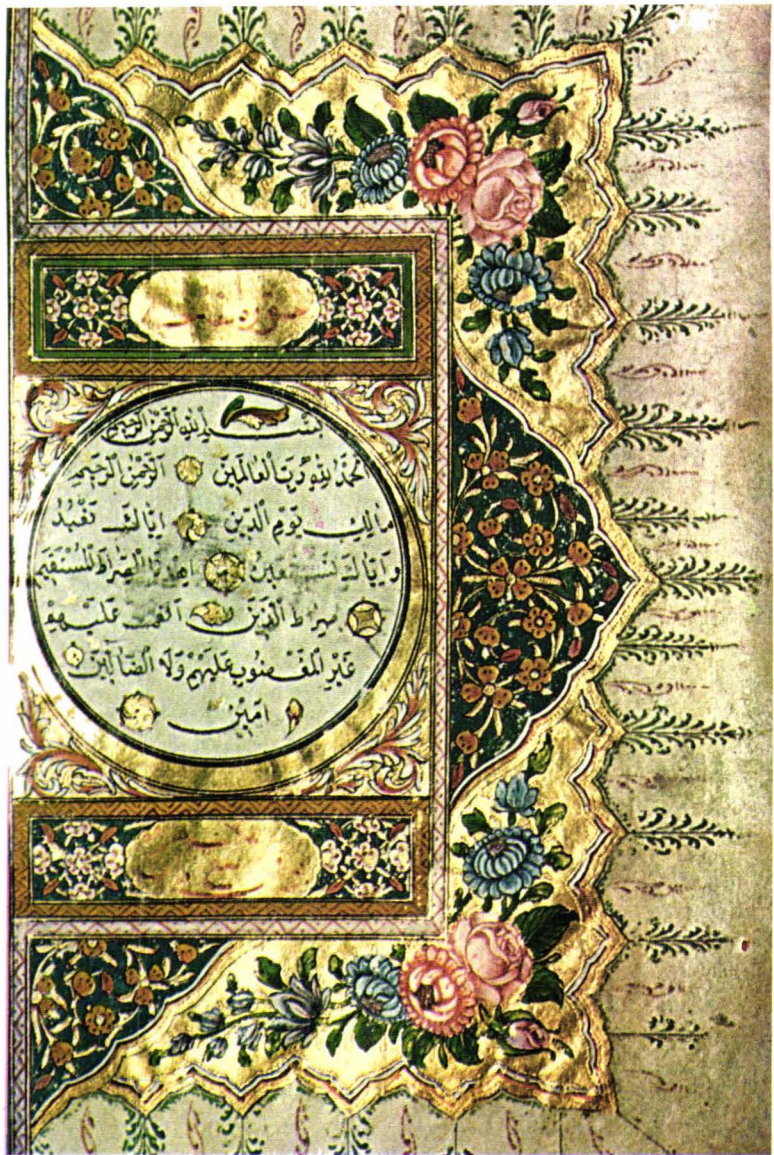 بسم الله الرحمن الرحيم
الحمد لله رب العالمين الرحمن الرحيم
مالك يوم الدين اياك نعبد
واياك نستعين اهدنا الصراط المستقيم
صراط الذين انعمت عليهم
غير المغضوب عليهم ولا الضالين
امين